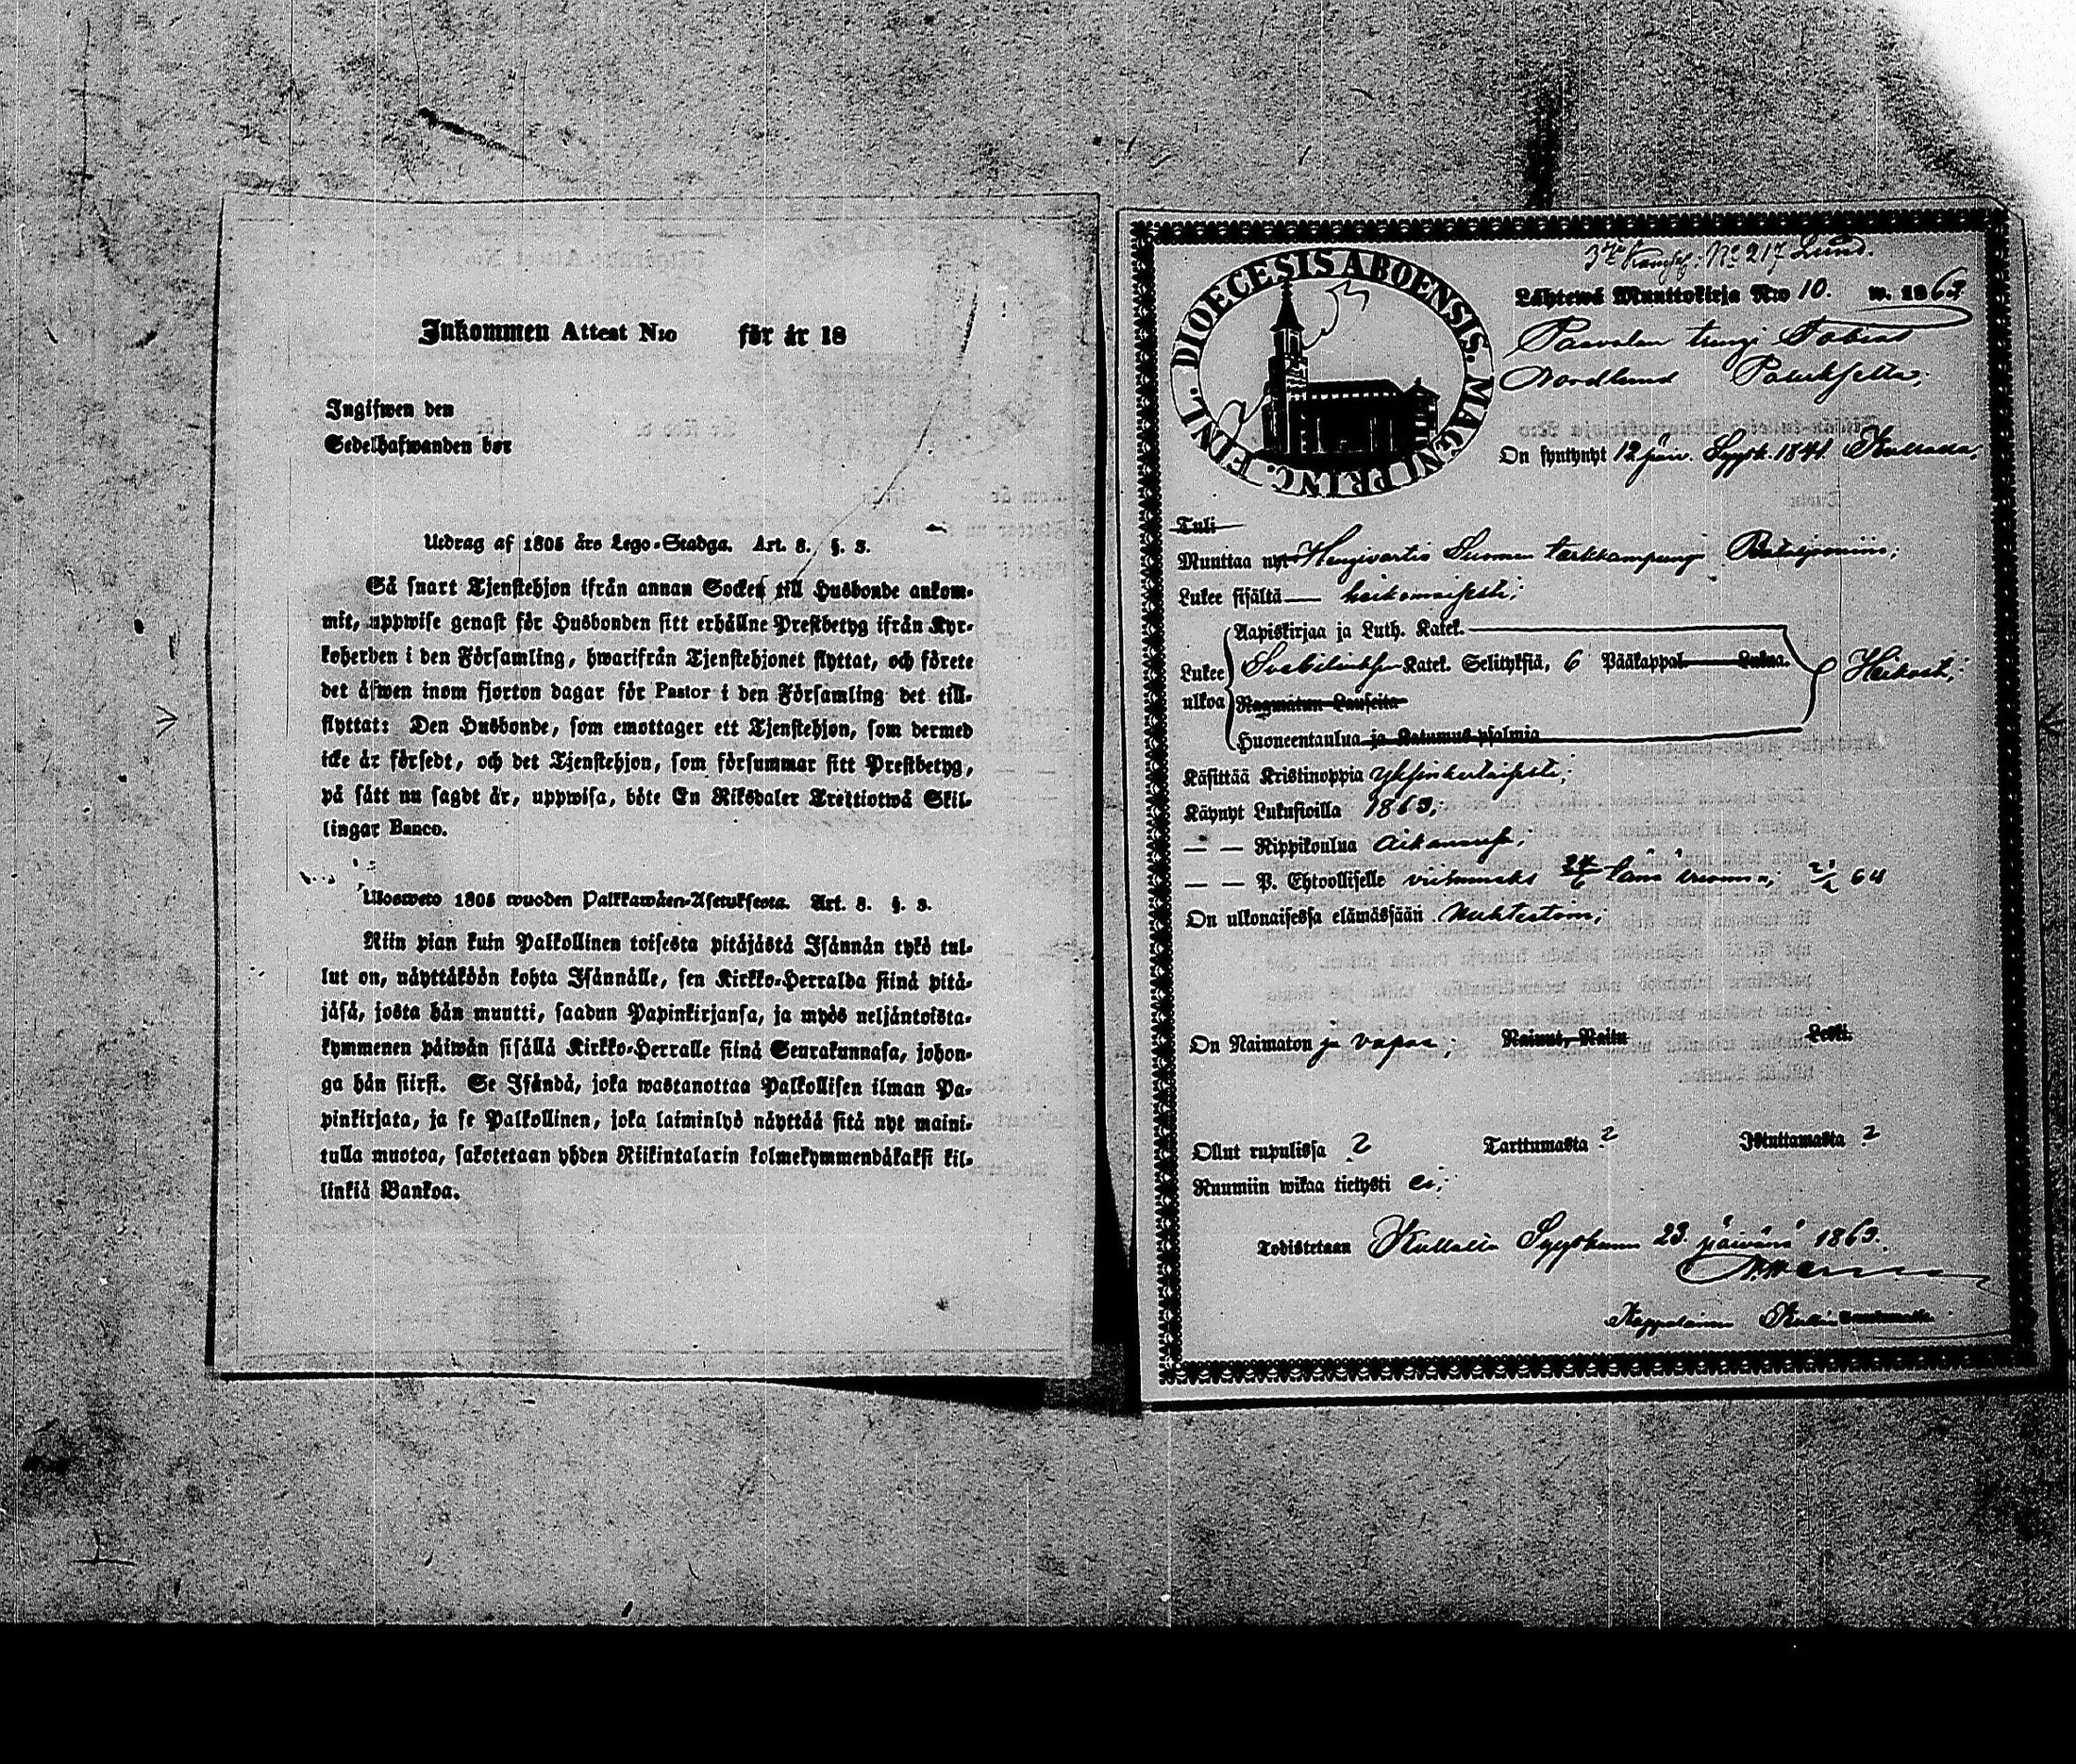 Inkommen Attest N:o för år 18
Ingifwen den
Sedelhafwanden bor
Utdrag af 1805 års Lego-Stadga. Art. 8. §. 3.
Så snart Tjenstehjon ifrån annan Socken till Husbonde ankom-
mit, uppwise genast för Husbonden sitt erhållne Prestbetyg ifrån Kyr-
koherden i den Församling, hwarifrån Tjenstehjonet flyttat, och förete
det äfwen inom fjorton dagar för Pastor i den Församling det till-
flyttat: Den Husbonde, som emottager ett Tjenstehjon, som dermed
icke är försedt, och det Tjenstehjon, som försummar sitt Prestbetyg,
på sätt nu sagdt är, uppwisa, böte En Riksdaler Trettiotwå Skil-
lingar Banco.
Ulosweto 1805 wuoden Palkkawäen-Asetuksesta. Art. 8. §. 3.
Niin pian kuin Palkollinen toisesta pitäjästä Isännän tykö tul-
lut on, näyttäköön kohta Isännälle, sen Kirkko-Herralda siinä pitä-
jäsä, josta hän muutti, saadun Papinkirjansa, ja myös neljäntoista-
kymmenen päiwän sisällä Kirkko-Herralle siinä Seurakunnasa, johon-
ga hän siirst. Se Isändä, joka wastanottaa Palkollisen ilman Pa-
pinkirjata, ja se Palkollinen, joka laiminlyö näyttää sitä nyt maini-
tulla muotoa, sakotetaan yhden Riikintalarin kolmekymmendäkaksi kil-
linkiä Bankoa.
DIOECESIS ABOENSIS. MAGNI PRINC. FINL.
No 217 Lund.
Lähtewä Muuttokirja N:o 10. w. 1863
Tobias
Nordlund
On syntynyt 12 päiv. Syysk. 1841 Kullaala.
Tuli
Muuttaa nyt Hengivartio Suomen tarkkampuja Pataljooniin;
Lukee sisältä heikomaisesti;
Aapiskirjaa ja Luth. Katek.
Lukee Svebiliuksen Katek. Selityksiä, 6 Pääkappal. Lukua. Heikost;
ulkoa Raamatun Lauseita
Huoneentaulua ja Katumus-psalmia
Käsittää Kristinoppia yksinkertaisesti;
Käynyt Lukusioilla 1863;
— — Rippikoulua Aikanansa,
— — P. Ehtoollisella viimmeksi 24/6 tänä vuonna; 2/2 64
On ulkonaisessa elämässään Nuhteetoin;
On Naimaton ja vapaa; Nainut, Naitu Leski.
Ollut rupulissa ? Tarttumasta ? Istuttamasta ?
Ruumiin wikaa tietysti ei;
Todistetaan Kullalla Syyskuun 23 päivänä 1863.
Kappalainen